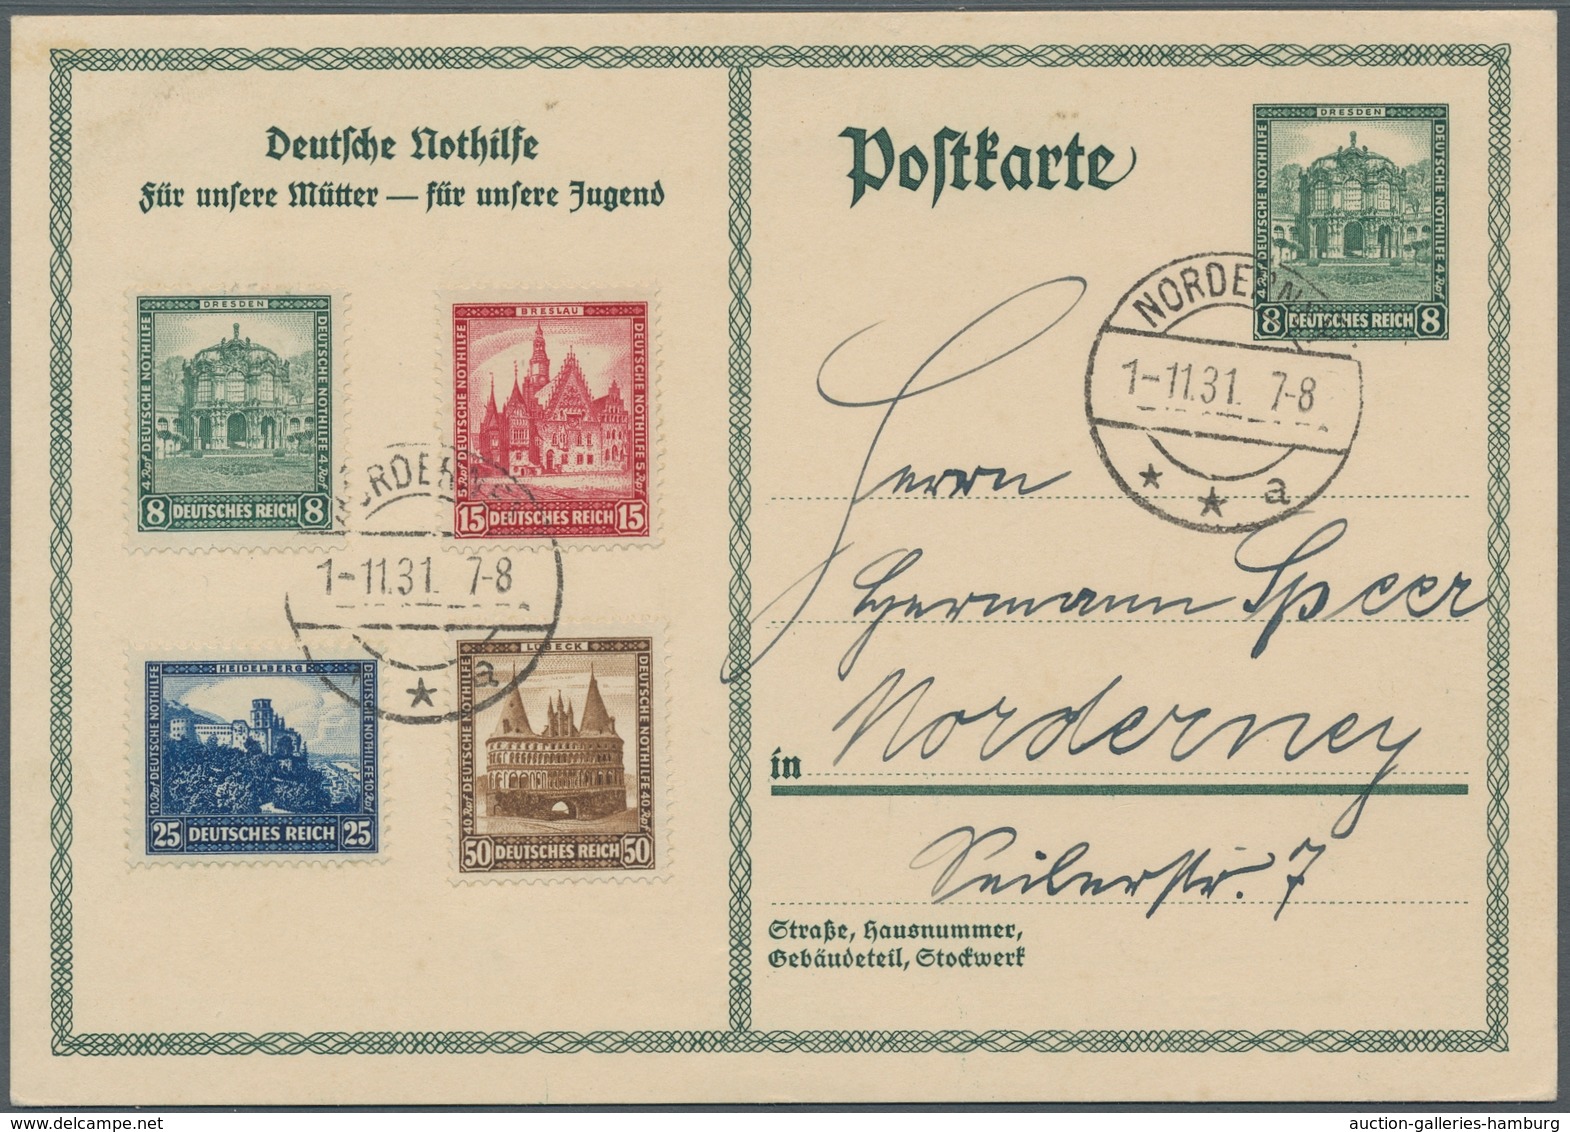 Deutsche Nothilfe
Für unsere Mütter — für unsere Jugend
DRESDEN
4 Rpf DEUTSCHE NOTHILFE
DEUTSCHE NOTHILFE 4 Rpf
8 DEUTSCHES REICH 8
BRESLAU
5 Rpf DEUTSCHE NOTHILFE
DEUTSCHE NOTHILFE 5 Rpf
15 DEUTSCHES REICH 15
NORDERNE
1-11.31. 7-8
a
HEIDELBERG
10 Rpf DEUTSCHE NOTHILFE
DEUTSCHE NOTHILFE 10 Rpf
25 DEUTSCHES REICH 25
LÜBECK
40 Rpf DEUTSCHE NOTHILFE
DEUTSCHE NOTHILFE 40 Rpf
50 DEUTSCHES REICH 50
Postkarte
DRESDEN
4 Rpf DEUTSCHE NOTHILFE
DEUTSCHE NOTHILFE 4 Rpf
8 DEUTSCHES REICH 8
NORDERN
1-11.31. 7-8
a
Herrn
Hermann Speer
in Norderney
Seilerstr. 7
Straße, Hausnummer,
Gebäudeteil, Stockwerk
auction-galleries-hamburg